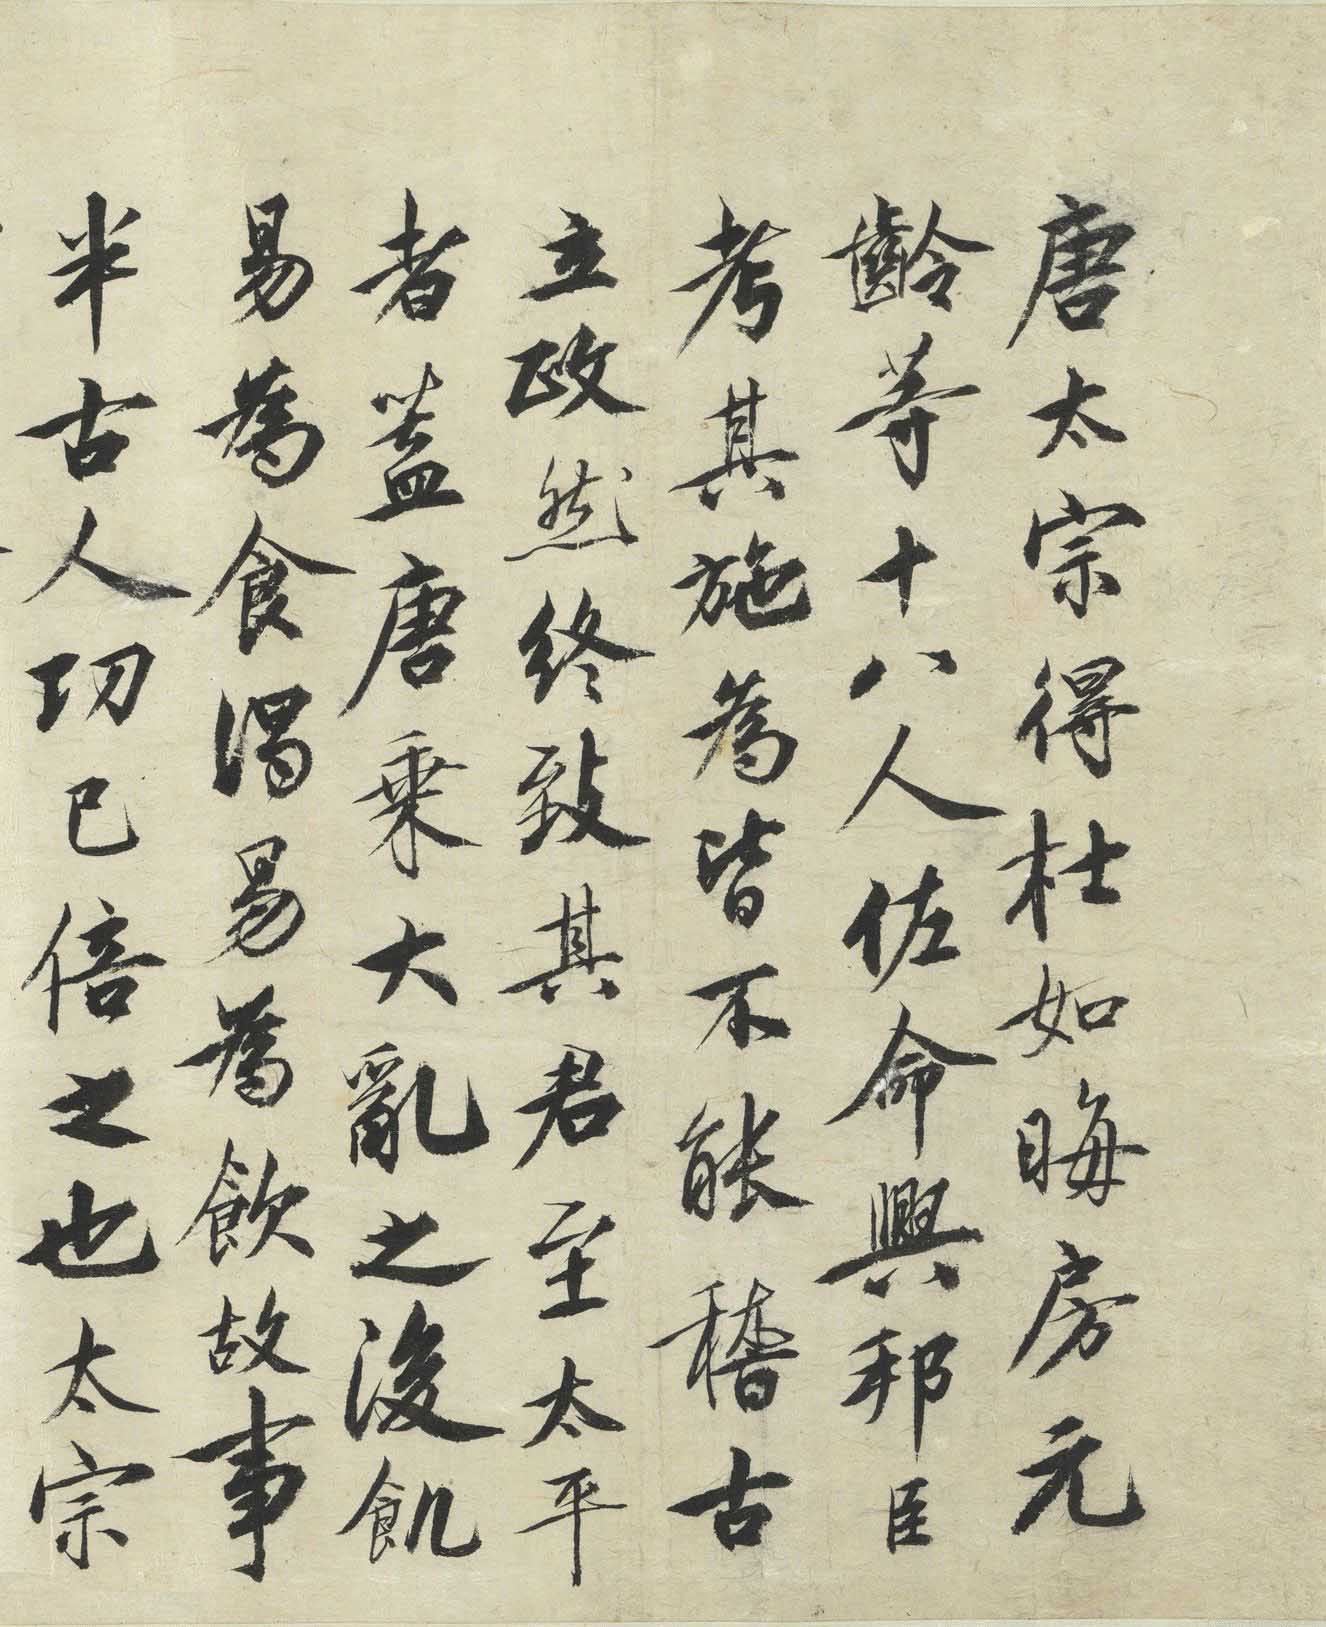 唐太宗得杜如晦房元
齡等十八人佐命興邦臣
考其施為皆不能稽古
立政然終致其君至太平
者蓋唐乘大亂之後飢
易為食渴易易為飲故事
半古人功已倍之也太宗